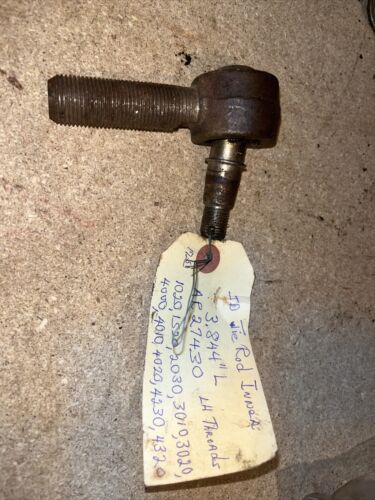 JD Tie Rod Inner
3.844" L
LH Threads
AR27430
1020, 1520, 2030, 3010, 3020,
4000, 4010, 4020, 4230, 4320